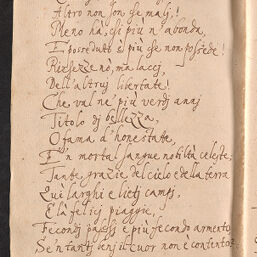 Altro non son, che mali,!
Meno hà, chi più n'abonda,
E posseduto è più che non possede!
Richezze nò, ma lacci,
Dell'altrui libertate!
Che val ne' più verdi anni
Titolo di bellezza,
O fama d'honestate,
E'n mortal sangue nobiltà celeste,
Tante grazie del cielo e della terra
Què larghi e lieti campi,
E là felici piaggie,
Fecondi paschi e più fecondo armento
Se'n tanti beni il cuor non è contento?